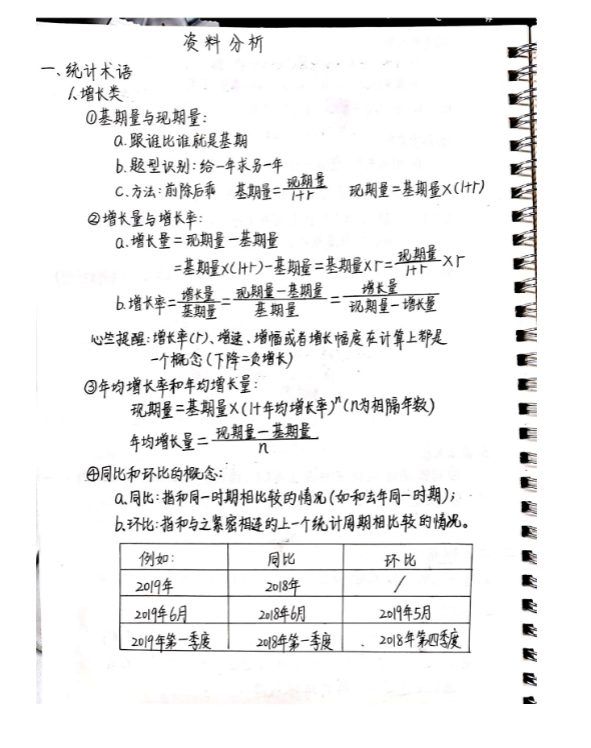 资料分析
一、统计术语
1.增长类
①基期量与现期量:
a.跟谁比谁就是基期
b.题型识别:给一年求另一年
c.方法:前除后乘 基期量=现期量/1+r 现期量=基期量×(1+r)
②增长量与增长率:
a.增长量=现期量-基期量
=基期量×(1+r)-基期量=基期量×r=现期量/1+r×r
b.增长率=增长量/基期量=现期量-基期量/基期量=增长量/现期量-增长量
心竺提醒:增长率(r)、增速、增幅或者增长幅度在计算上都是
一个概念(下降=负增长)
③年均增长率和年均增长量:
现期量=基期量×(1+年均增长率)ⁿ(n为相隔年数)
年均增长量=现期量-基期量/n
④同比和环比的概念:
a.同比:指和同一时期相比较的情况(如和去年同一时期);
b.环比:指和与之紧密相连的上一个统计周期相比较的情况。
例如: 同比 环比
2019年 2018年 /
2019年6月 2018年6月 2019年5月
2019年第一季度 2018年第一季度 2018年第四季度